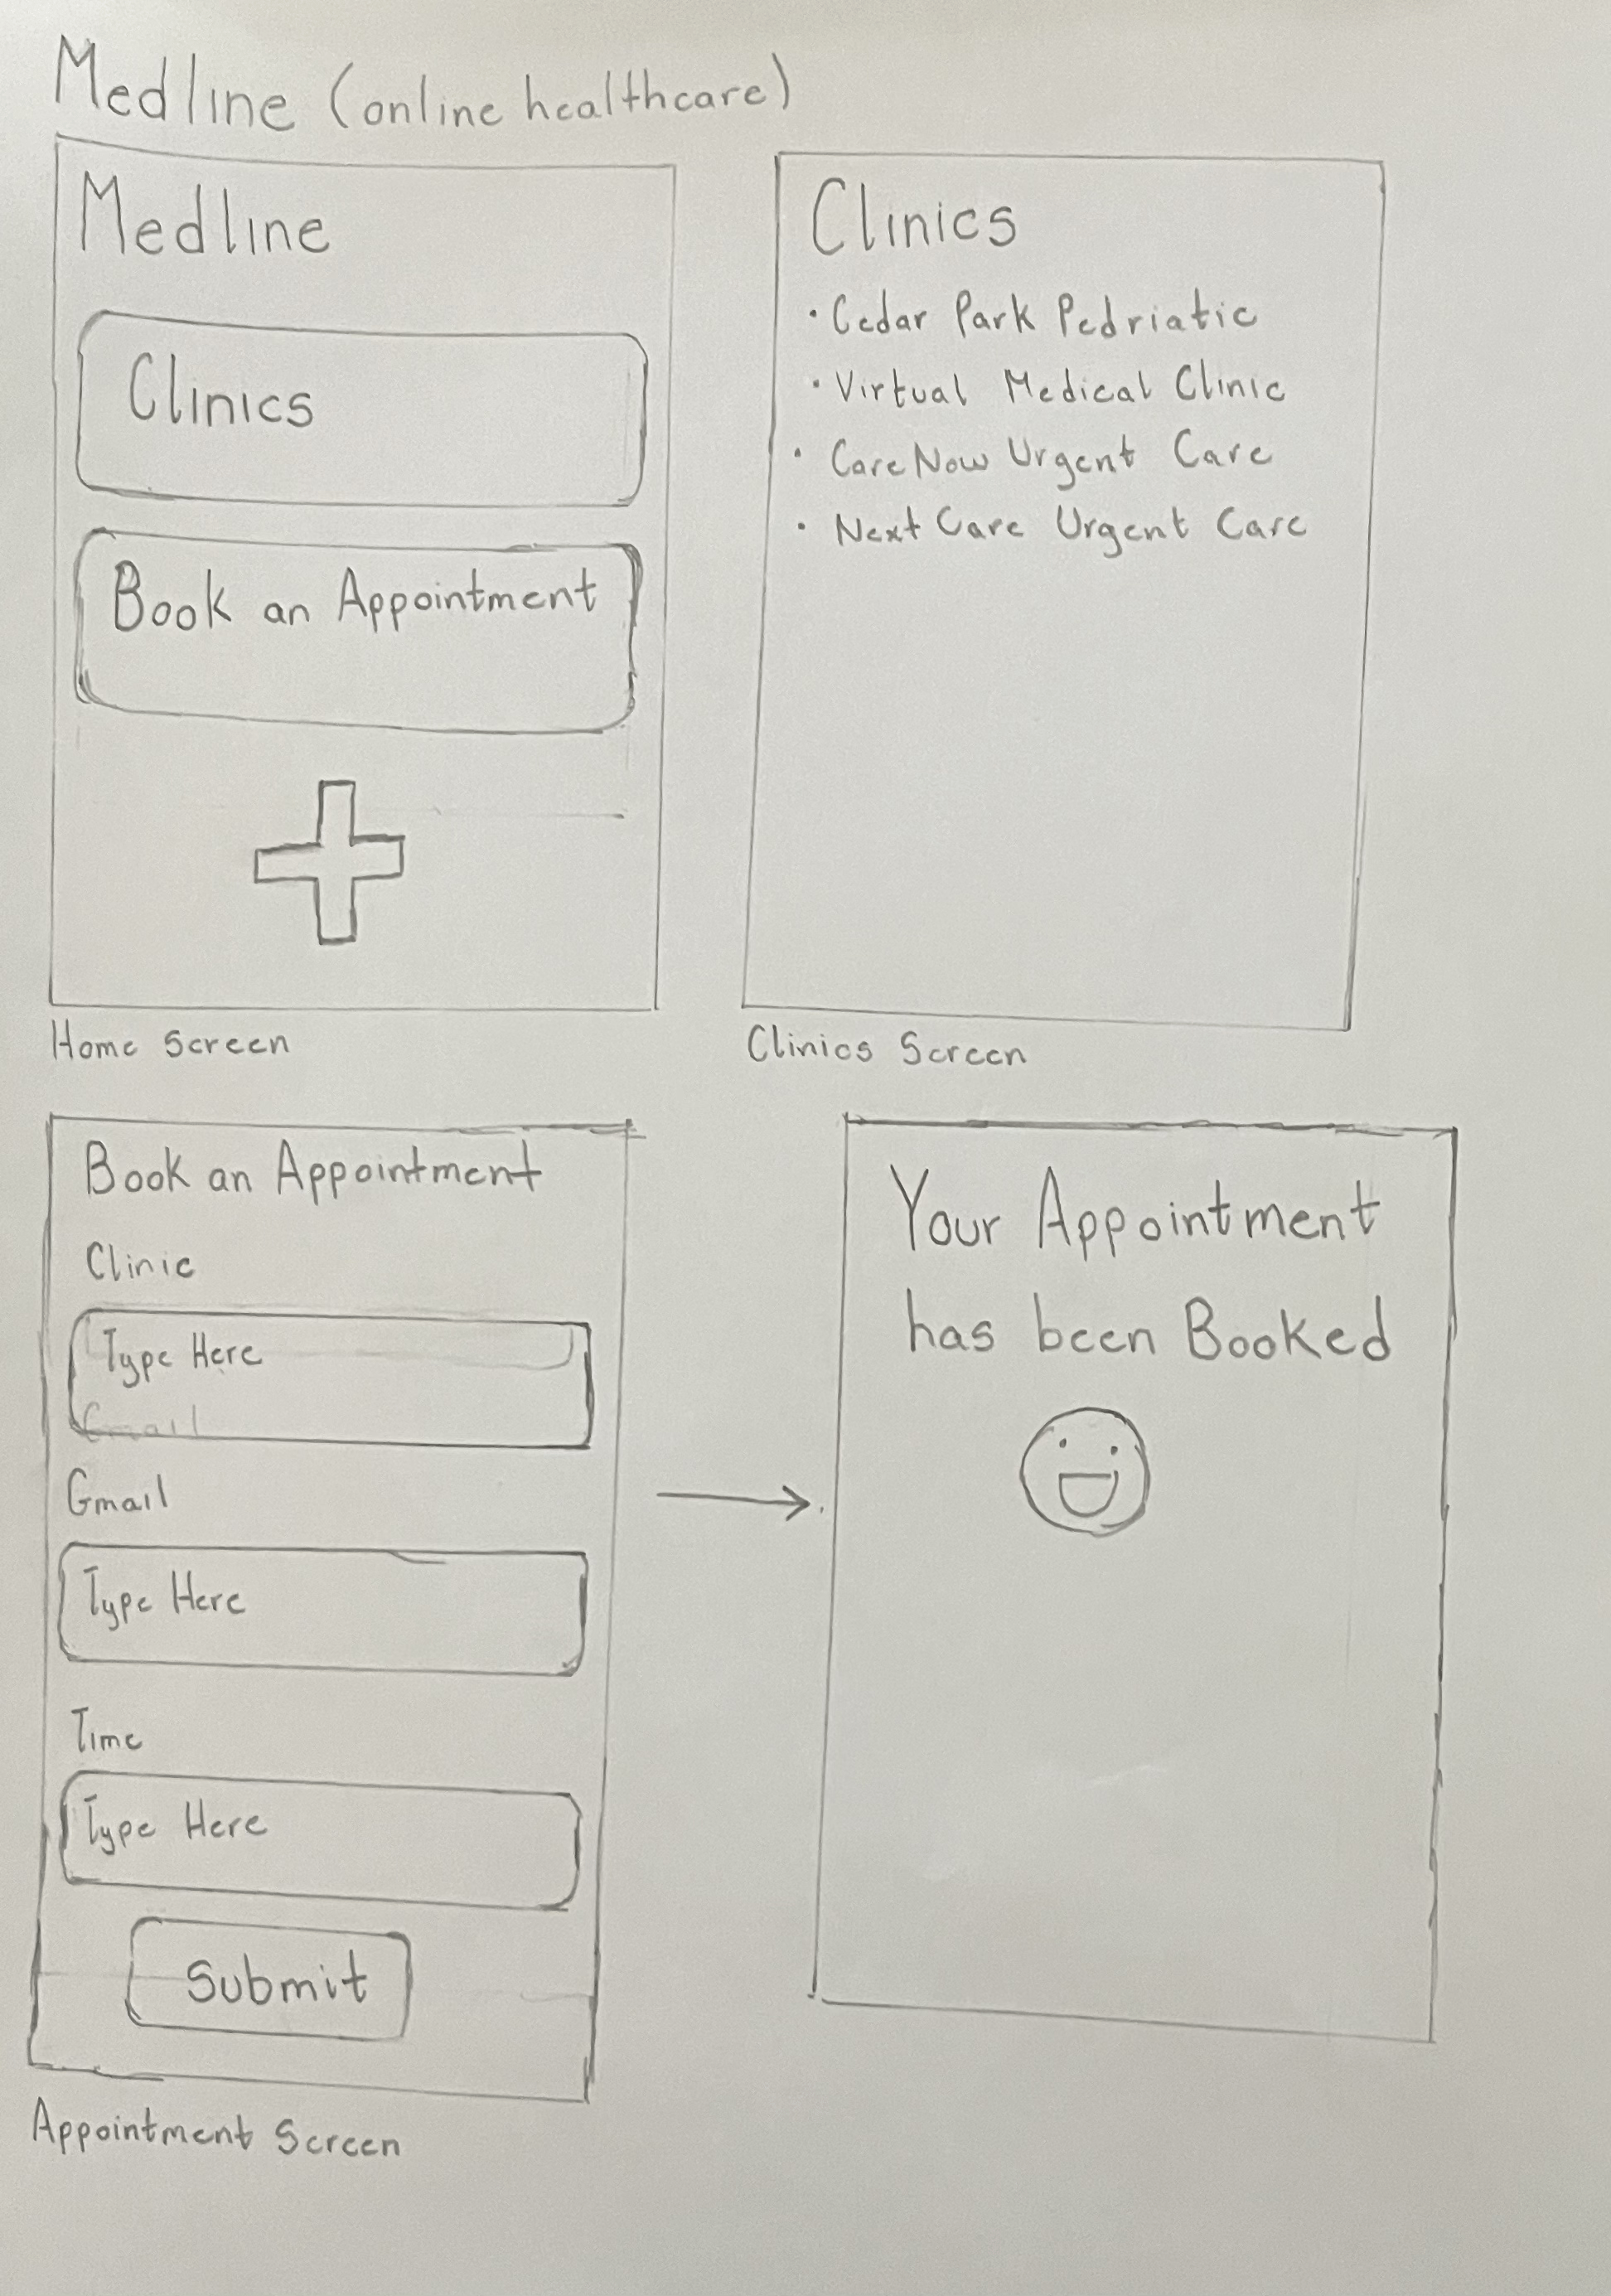 Medline (online healthcare)
Medline
Clinics
Book an Appointment
Home Screen
Clinics
• Cedar Park Pedriatic
• Virtual Medical Clinic
• CareNow Urgent Care
• Next Care Urgent Care
Clinics Screen
Book an Appointment
Clinic
Type Here
Gmail
Gmail
Type Here
Time
Type Here
Submit
Appointment Screen
Your Appointment
has been Booked